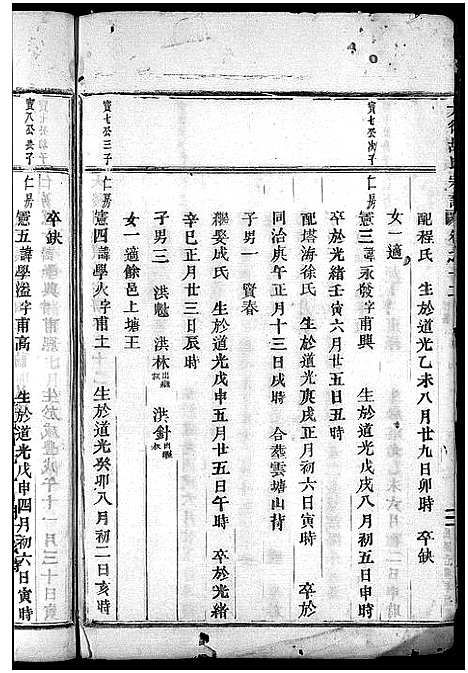 配程氏 生於道光乙未八月廿九日卯時 卒缺
女一適
寳七公次子 仁房
憲三諱承發字甫興 生於道光戊戌八月初五日申時
卒於光緒壬寅六月廿五日丑時
配塔海徐氏 生於道光庚戌正月初六日寅時 卒於
同治庚午正月十三日戌時 合葬雲塘山背
子男一 賢春
繼娶成氏 生於道光戊申五月廿五日午時 卒於光緒
辛巳正月廿三日辰時
子男三 洪魁 洪林出繼叔 洪針出繼叔
女一適餘邑上塘王
寳七公三子 仁房
憲四諱學火字甫土 生於道光癸卯八月初二日亥時
卒缺
寳八公長子 仁房
憲五諱學溢字甫高 生於道光戊申四月初六日寅時